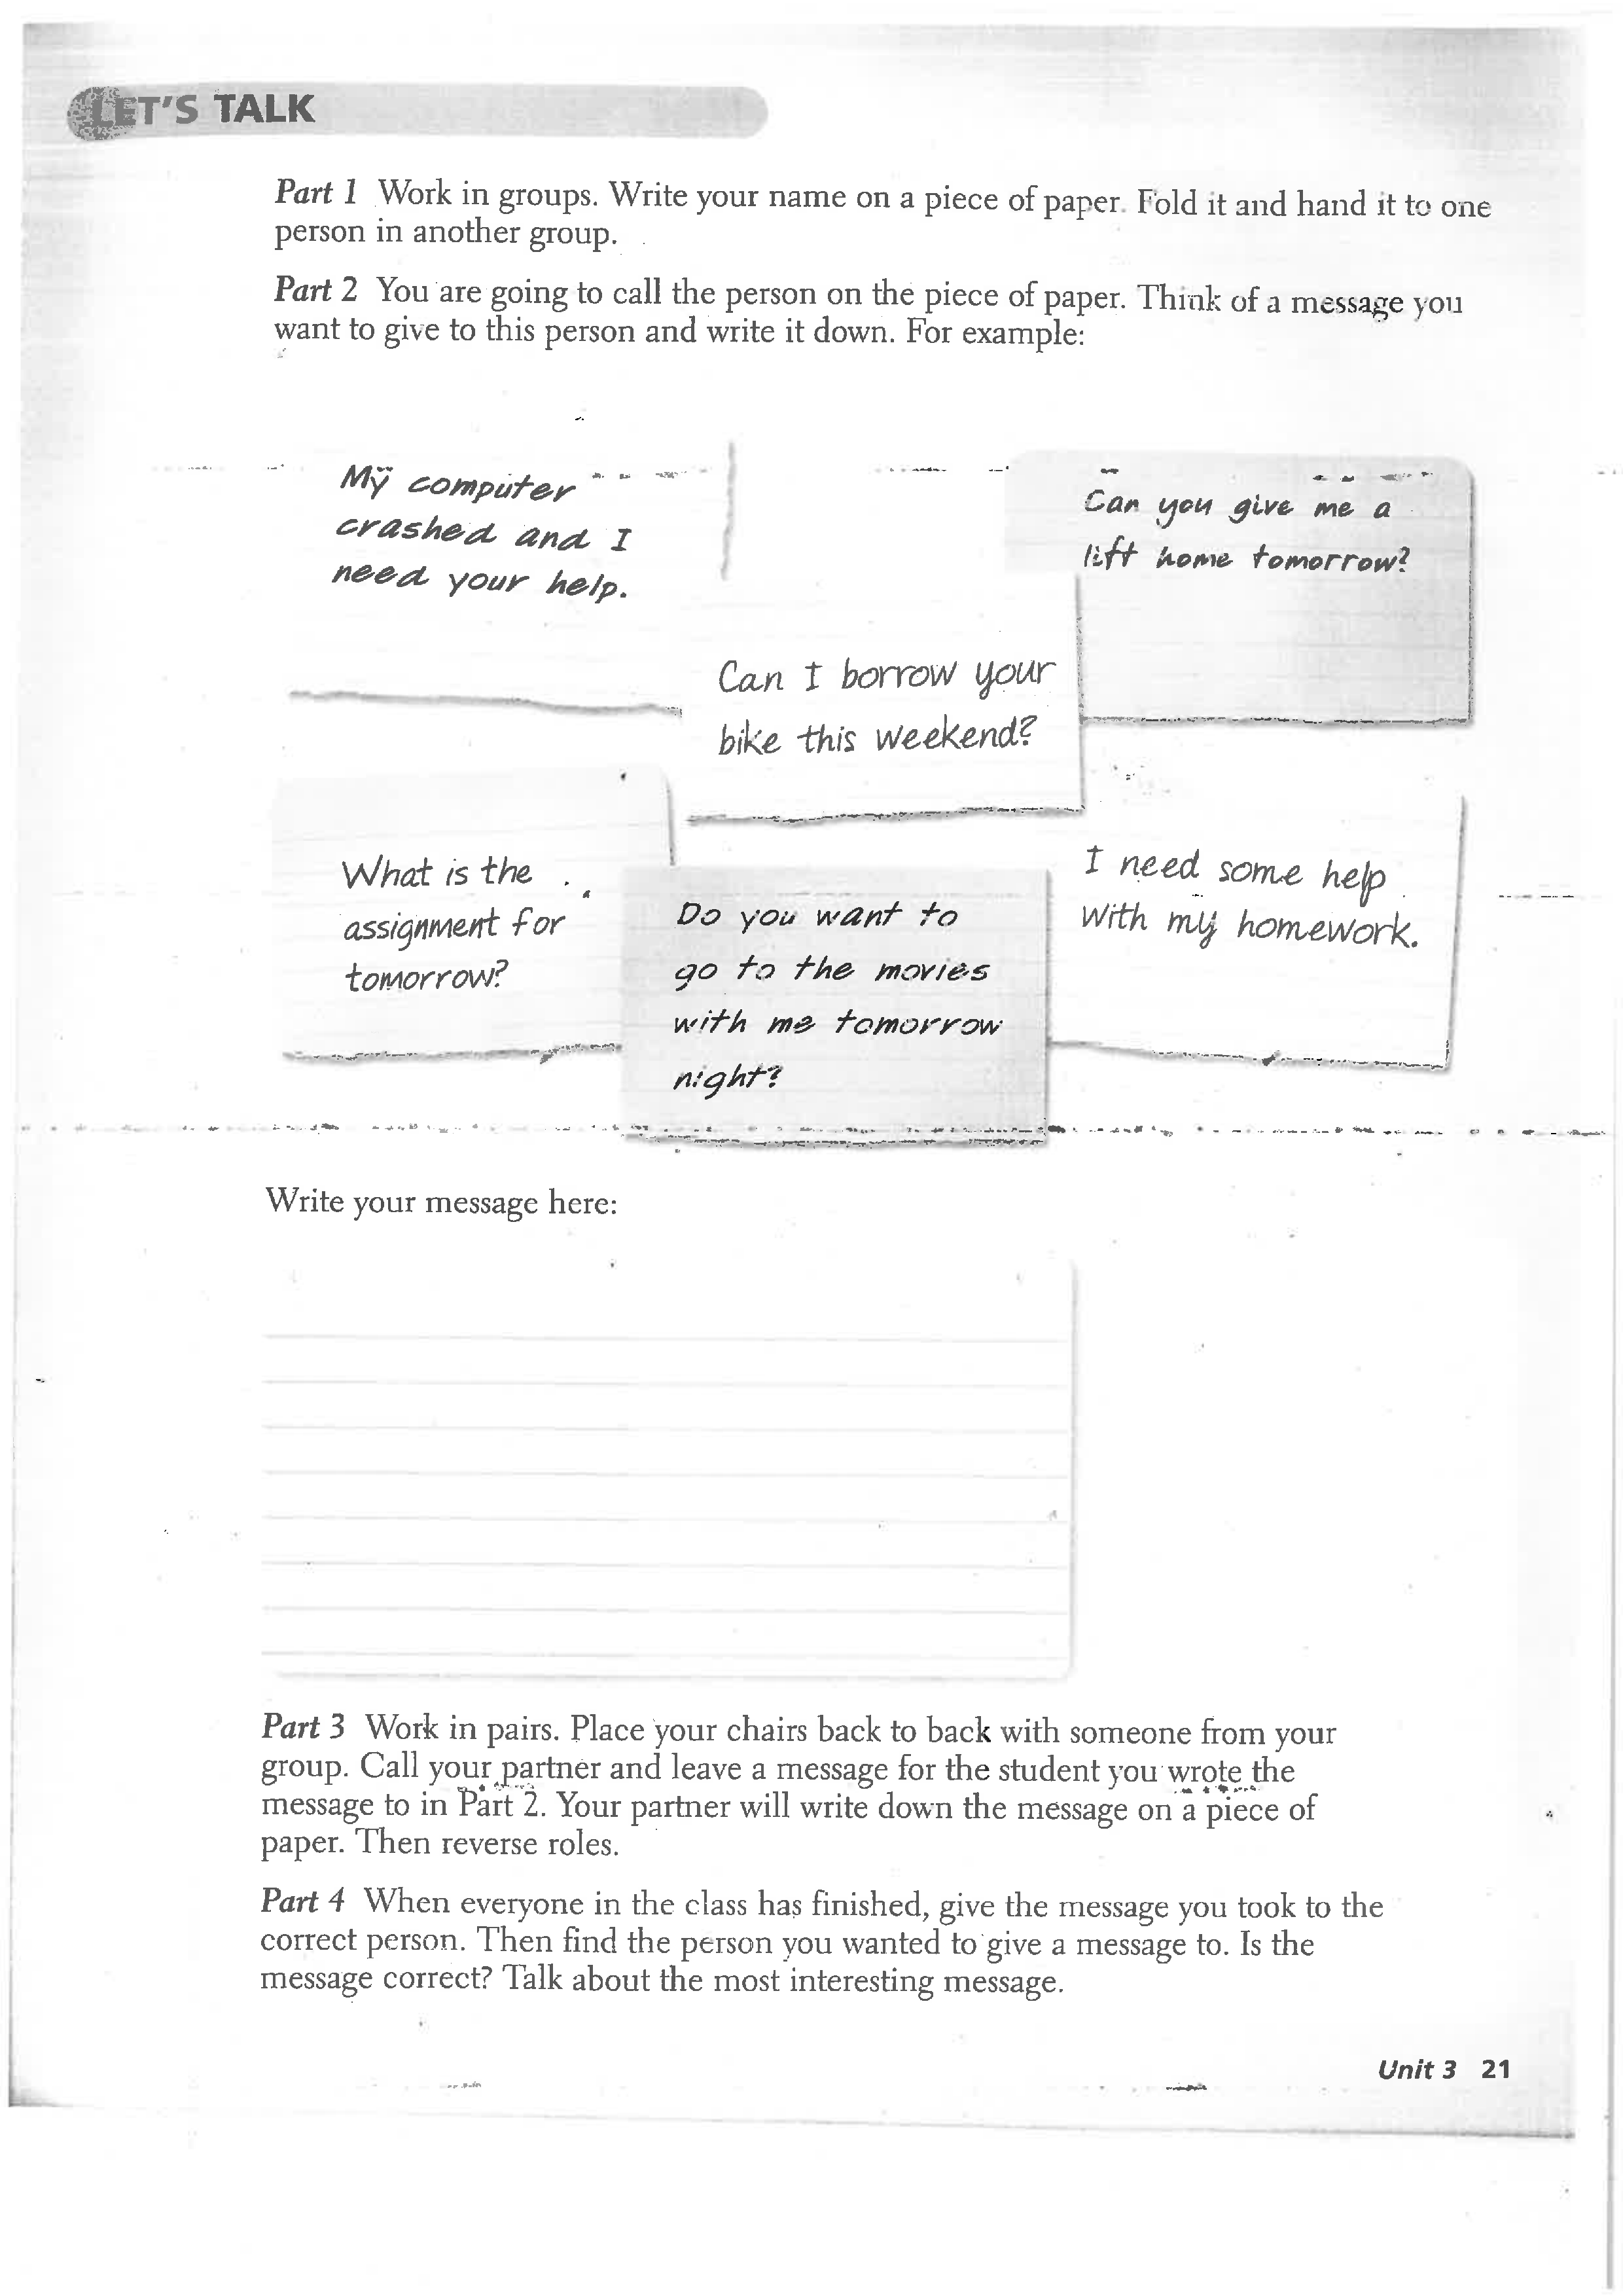 LET'S TALK
Part 1 Work in groups. Write your name on a piece of paper. Fold it and hand it to one
person in another group.
Part 2 You are going to call the person on the piece of paper. Think of a message you
want to give to this person and write it down. For example:
My computer
crashed and I
need your help.
Can you give me a
lift home tomorrow?
Can I borrow your
bike this weekend?
What is the
assignment for
tomorrow?
Do you want to
go to the movies
with me tomorrow
night?
I need some help
with my homework.
Write your message here:
Part 3 Work in pairs. Place your chairs back to back with someone from your
group. Call your partner and leave a message for the student you wrote the
message to in Part 2. Your partner will write down the message on a piece of
paper. Then reverse roles.
Part 4 When everyone in the class has finished, give the message you took to the
correct person. Then find the person you wanted to give a message to. Is the
message correct? Talk about the most interesting message.
Unit 3 21